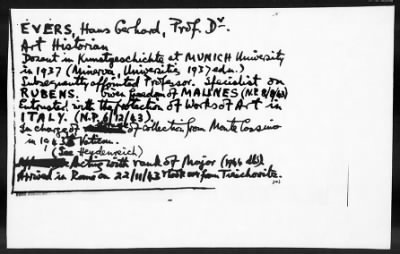 EVERS, Hans Gerhard, Prof. Dr.
Art Historian
Dozent in Kunstgeschichte at MUNICH University
in 1937 (Minerva, Universities 1937 edn.)
Subsequently appointed Professor. Specialist on
RUBENS. Given freedom of MALINES (N.P. 8/9/43)
Entrusted with the protection of Works of Art in
ITALY. (N.P. 6/12/43).
In charge of of collection from Monte Cassino
in 1943 Vatican.
(See Heydenreich)
Acting with rank of Major (1944
Arrived in Rome on 22/11/43 & took over from Tieschowitz.